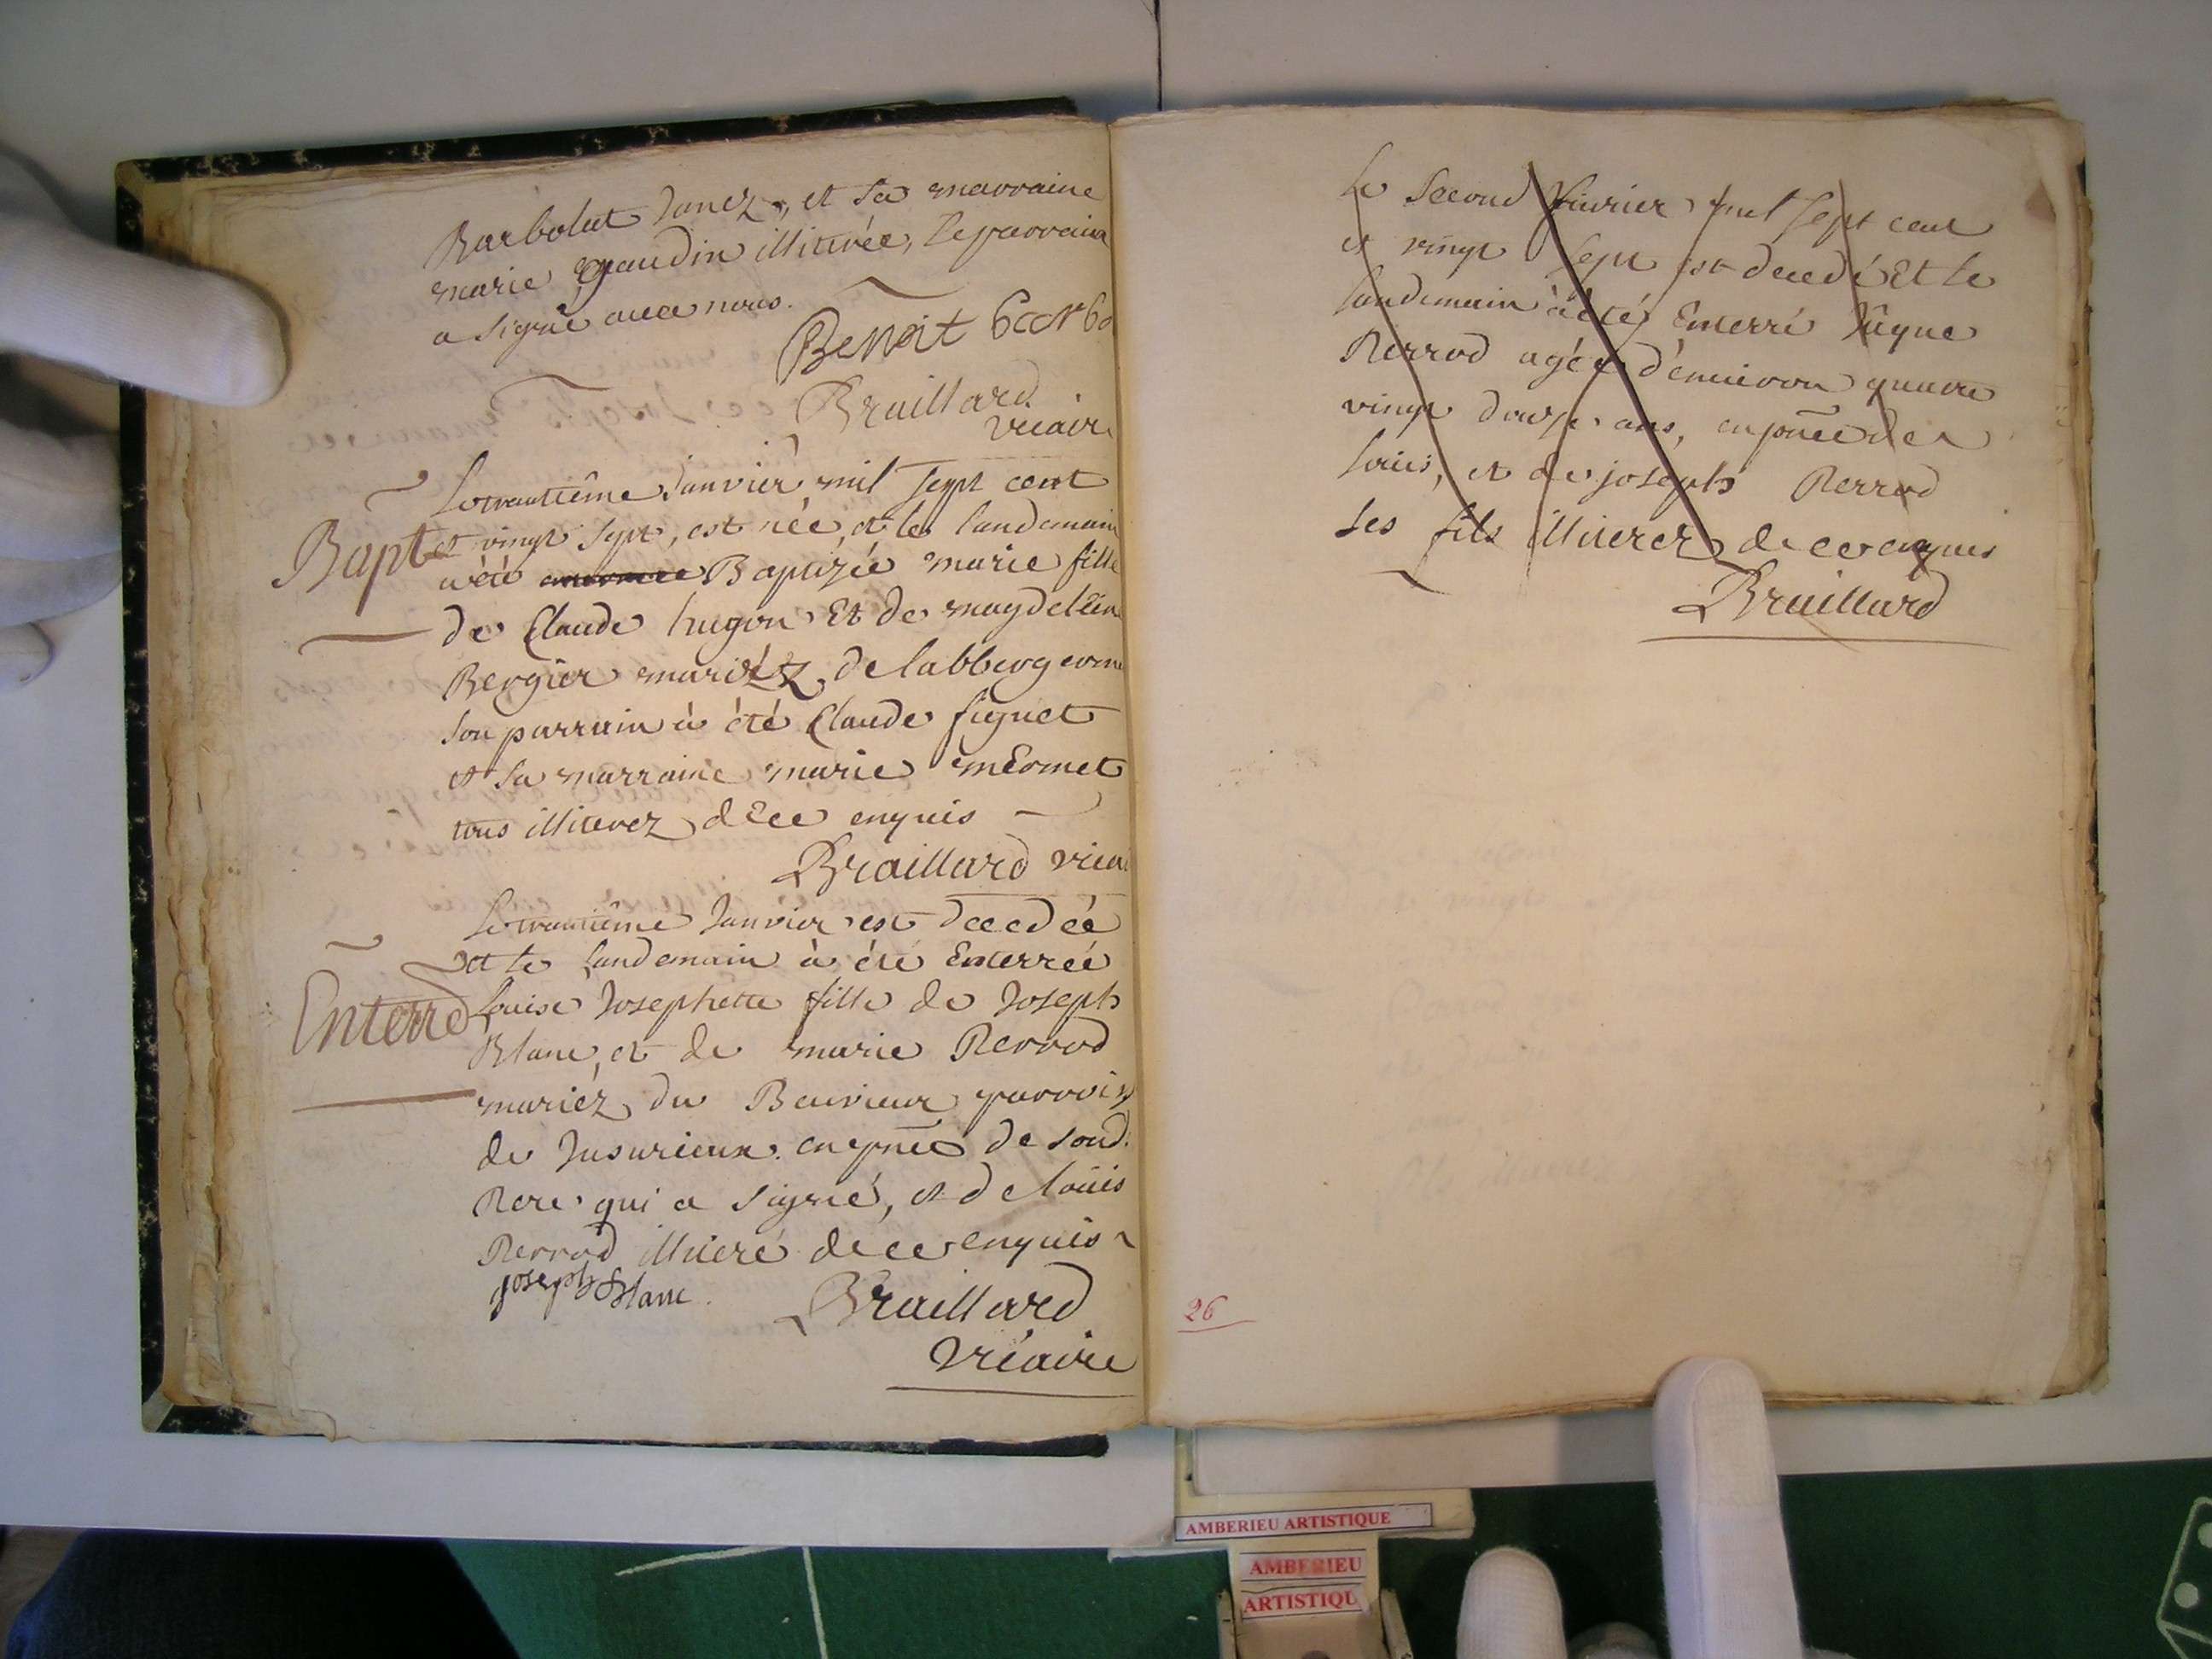 Barbolat Janez, et sa marraine
marie gaudin illiterée, le parrain
a signé avec nous.
Benoit
Braillard
vicaire
Le trantiême Janvier mil sept cent
Bapt
et vingt sept, est née, et le landemain
a été Baptizée marie fille
de Claude hugon Et de magdelein
Bergier mariéz de labbergem
son parrain à été Claude figuet
et sa marraine marie mErmet
tous illiterez dEce enquis
Braillard vica
Le trantiême Janvier est decedée
et le landemain à été Enterrée
Enterré
Louise Josephette fille de Joseph
Blanc, et de marie Perrod
mariéz du parrois
de Jusurieux en pnce de sond.
Pere qui a signé, et de loüis
Perrod illiteré de ce enquis
joseph Blanc.
Braillard
vicaire
Le second fevrier mil sept cent
et vingt sept est decedé Et le
landemain à été Enterré
Perrod agée d'enuiron quatre
vingt douze ans, en pnce de
loüis, et de joseph Perrod
ses fils illiterez de ce enquis
Braillard
26
AMBERIEU ARTISTIQUE
AMBERIEU
ARTISTIQU